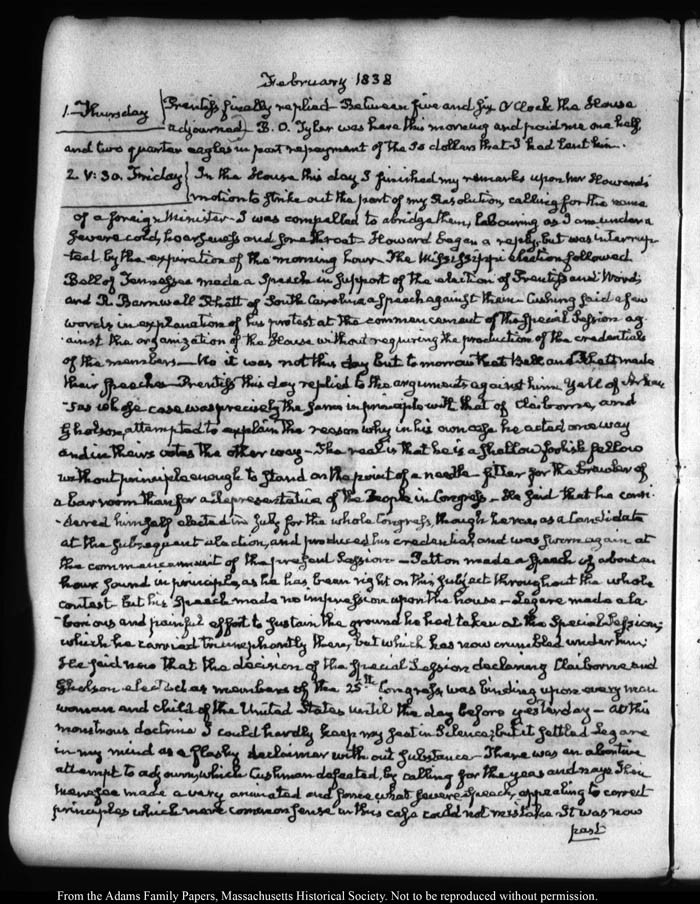 February 1838
1. Thursday Prentiss finally replied Between five and six O'Clock the House
adjourned. B. O. Tyler was here this morning and paid me one half,
and two quarter eagles in part repayment of the 30 dollars that I had lent him.
2. V: 30. Friday In the House this day I finished my remarks upon Howard's
motion to strike out the part of my Resolution, calling for the name
of a foreign Minister. I was compelled to abridge them, labouring as I am under a
severe cold, hoarseness and sore throat. Howard began a reply, but was interrup-
ted by the expiration of the morning hour. The Mississippi election followed
Bell of Tennessee made a Speech in support of the election of Prentiss and Word,
and R. Barnwell Rhett of South Carolina a speech against them. Cushing said a few
words in explanation of his protest at the commencement of the Special Session ag-
ainst the organization of the House without requiring the production of the credentials
of the members — No it was not this day but tomorrow that Bell and Rhett made
their speeches — Prentiss this day replied to the arguments against him Yell of Arkan-
sas whose case was precisely the same in principle with that of Claiborne, and
Gholson, attempted to explain the reason why in his own case he acted one way
and in theirs votes the other way — The real is that he is a shallow foolish fellow
without principle enough to stand on the point of a needle — fitter for the brawler of
a bar room than for a Representative of the People in Congress — He said that he consi-
dered himself elected in July for the whole Congress, though he was as a Candidate
at the subsequent election, and produced his credentials and was sworn again at
the commencement of the present Session — Patton made a Speech of about an
hour sound in principle, as he has been right on this subject throughout the whole
contest but his Speech made no impression upon the house — Legare made a la-
borious and painful effort to sustain the ground he had taken at the Special Session;
which he carried triumphantly then, but which has now crumbled under him;
He said now that the decision of the Special Session declaring Claiborne and
Gholson elected as members of the 25th Congress, was binding upon every man
woman and child of the United States until the day before yesterday — At this
monstrous doctrine I could hardly keep my seat in Silence; but it settled Legare
in my mind as a flashy declaimer without substance — There was an abortive
attempt to adjourn, which Cushman defeated, by calling for the yeas and nays Then
Menefee made a very animated and somewhat severe speech, appealing to correct
principles which mere common sense in this case could not mistake It was now
past
From the Adams Family Papers, Massachusetts Historical Society. Not to be reproduced without permission.